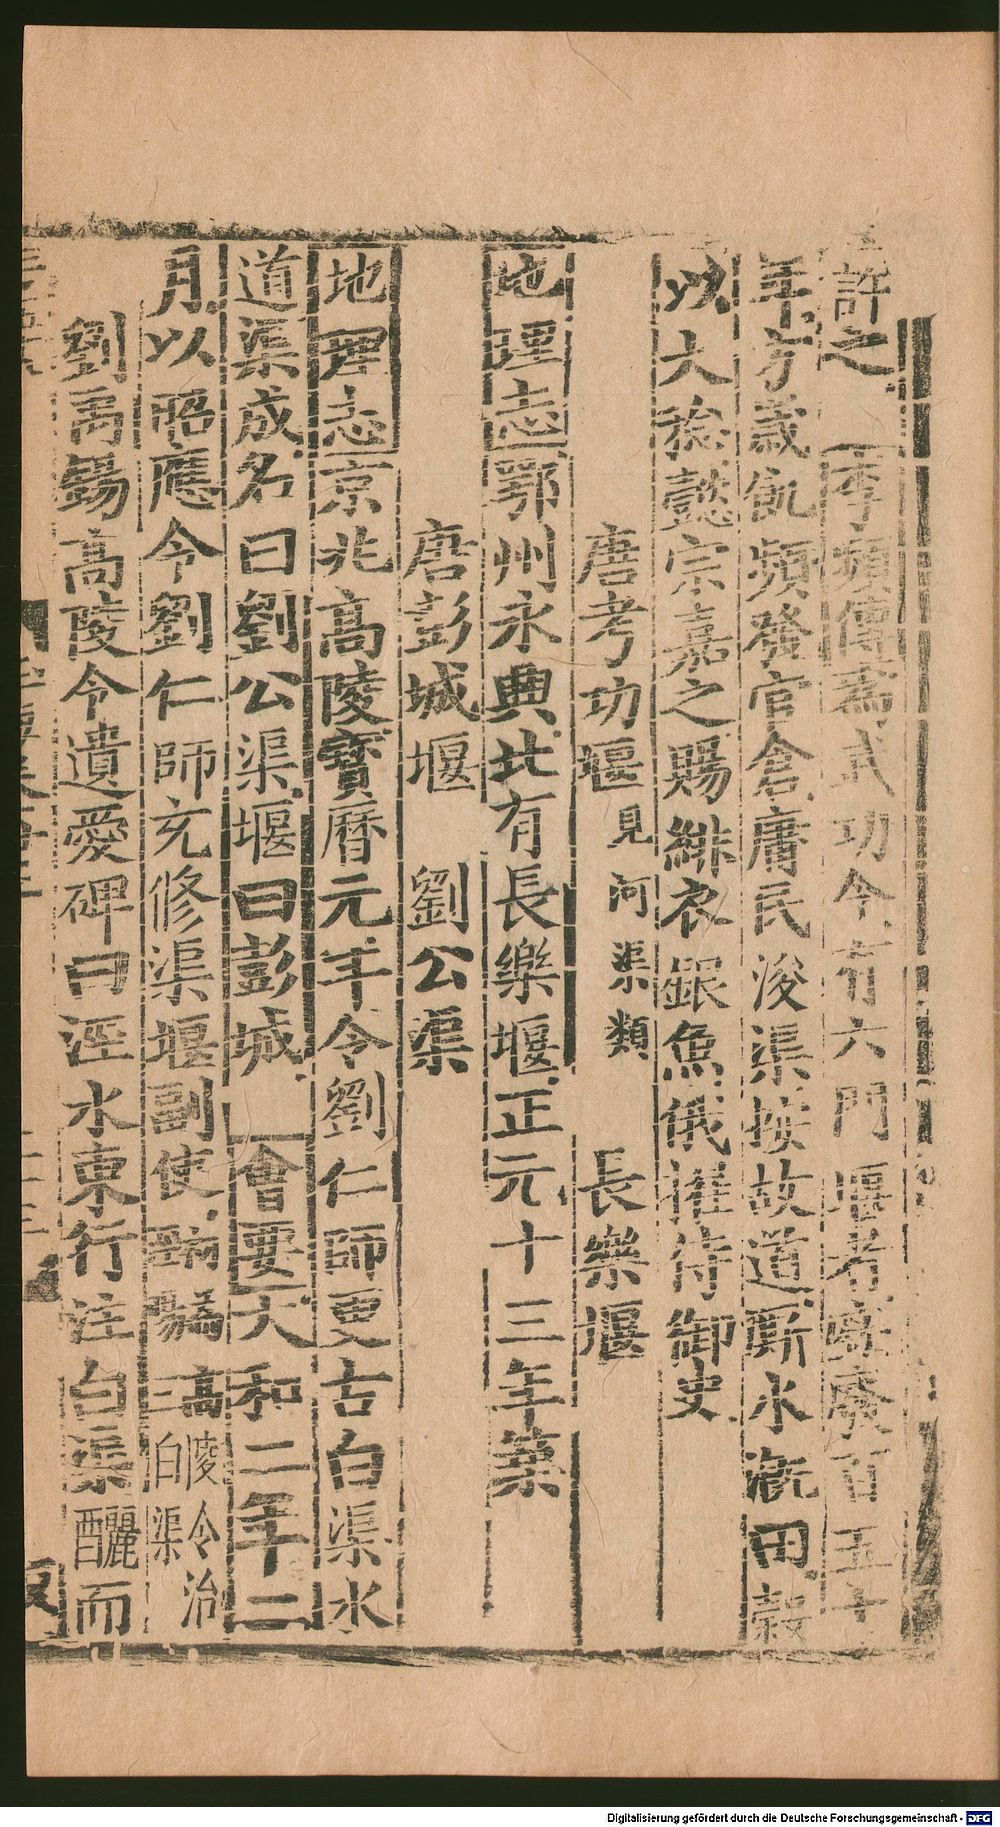 許之 李頻傳爲武功令有六門堰者廢百五十
年方歲飢頻發官倉庸民浚渠按故道厮水漑田穀
以大稔懿宗嘉之賜緋衣銀魚俄擢侍御史
唐考功堰見河渠類 長樂堰
地理志鄂州永興北有長樂堰正元十三年築
唐彭城堰 劉公渠
地理志京兆高陵寶曆元年令劉仁師更古白渠水
道渠成名曰劉公渠堰曰彭城 會要大和二年二
月以昭應令劉仁師充修渠堰副使高陵令治三白渠
劉禹錫高陵令遺愛碑曰涇水東行注白渠釃而
Digitalisierung gefördert durch die Deutsche Forschungsgemeinschaft - DFG